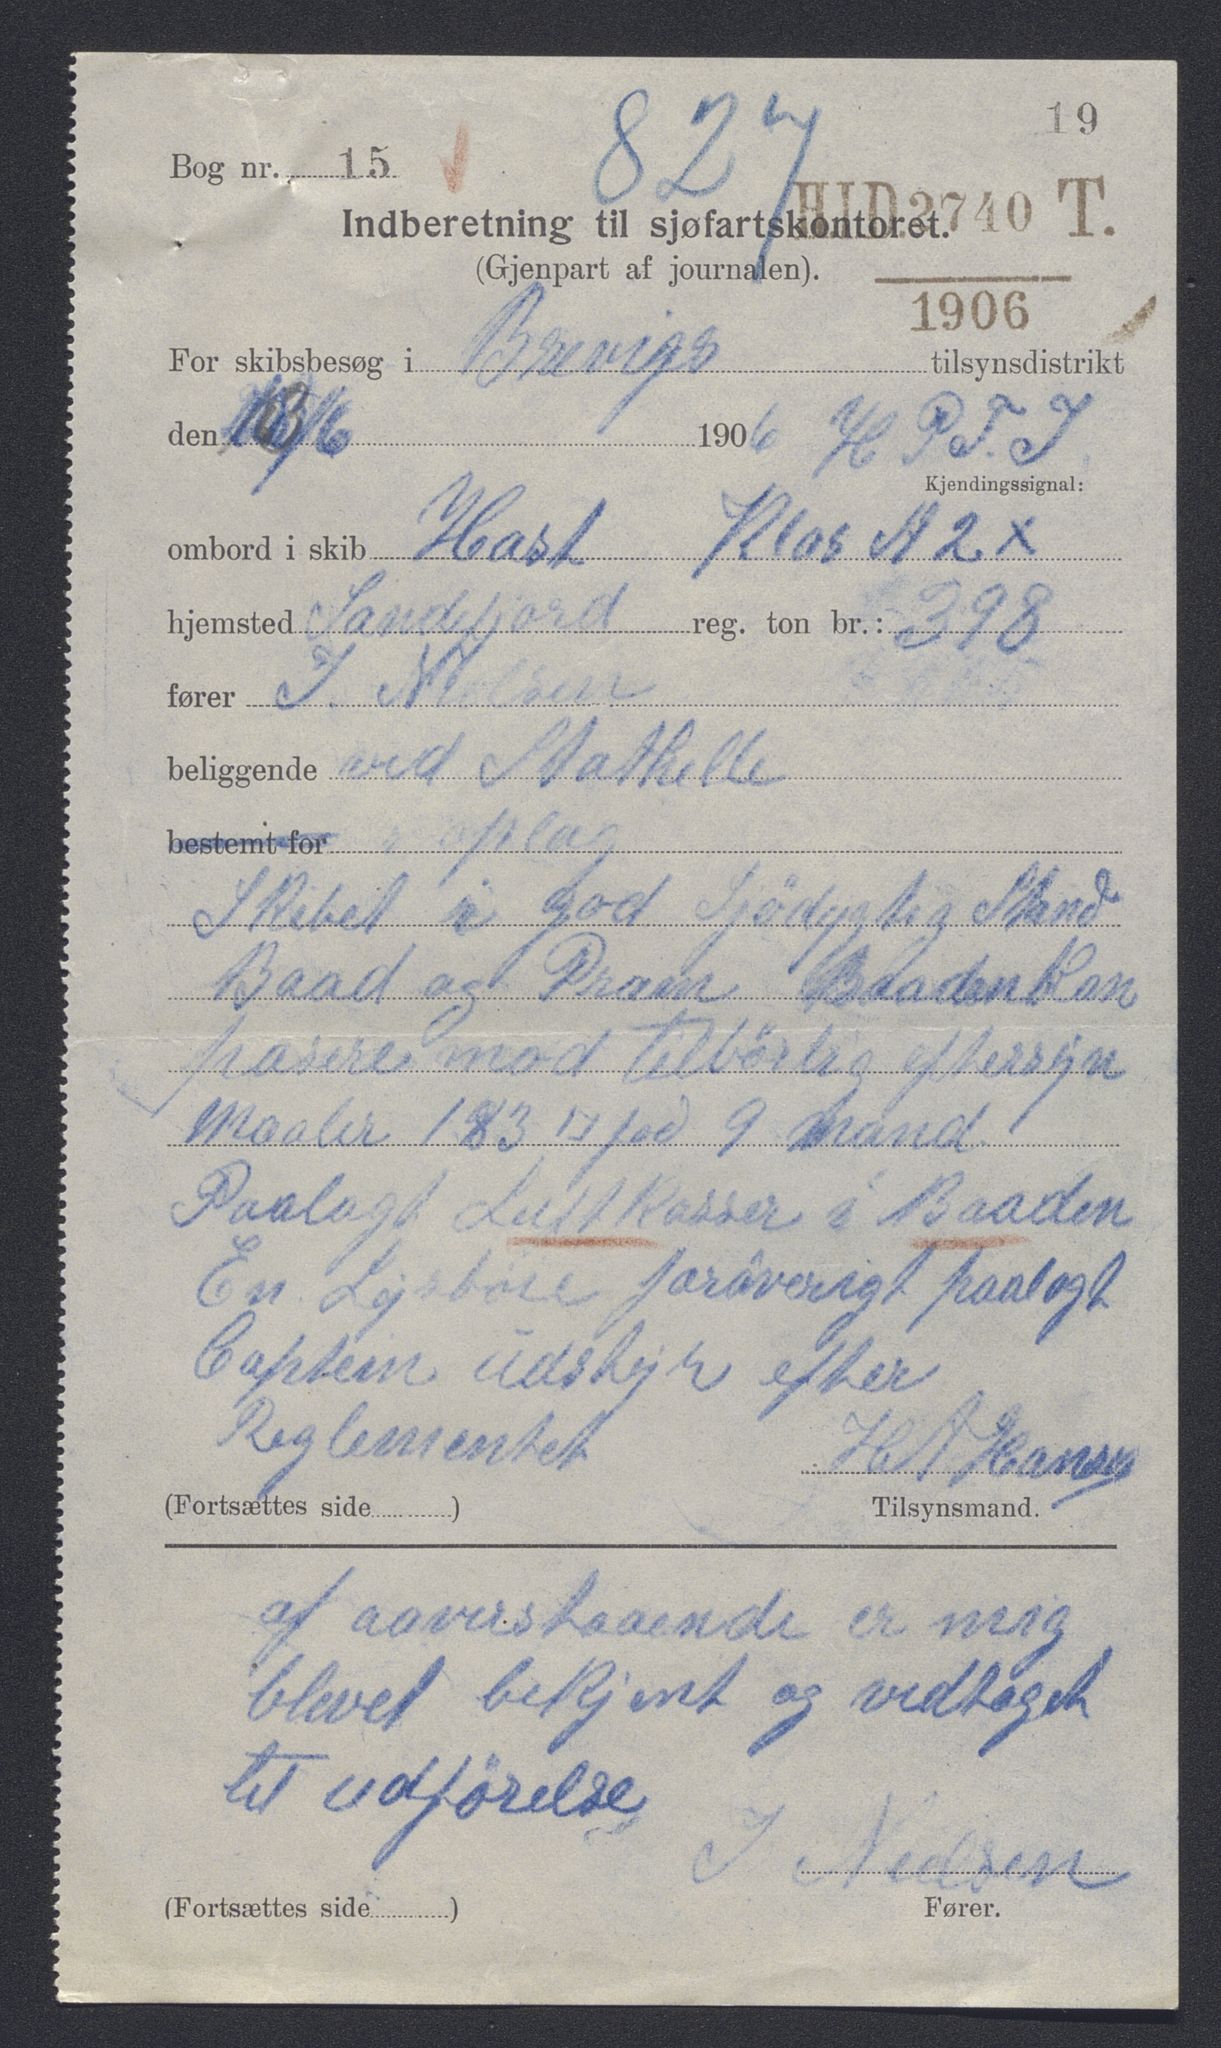 19
827
Bog nr. 15
H.I.D. 2740 T.
1906
Indberetning til sjøfartskontoret.
(Gjenpart af journalen).
For skibsbesøg i Brevigs tilsynsdistrikt
den 13/6 1906 H P. F. J
Kjendingssignal:
ombord i skib Hast Klas A 2 x
hjemsted Sandefjord reg. ton br.: 398
fører J. Nielsen
beliggende ved Stathelle
bestemt for i oplag
Skibet i god Sjödygtig Stand
Baad og Pram Baaden kan
pasere mod tilbörlig eftersyn
Maaler 183 □ fod 9 Mand.
Paalagt Luftkasser i Baaden
En Lysböie foröverigt paalagt
Captein üdstyr efter
Reglementet H A Hansen
(Fortsættes side ) Tilsynsmand.
af aaverstaaende er mig
blevet bekjent og vedtaget
til udförelse
J Nielsen
(Fortsættes side ) Fører.